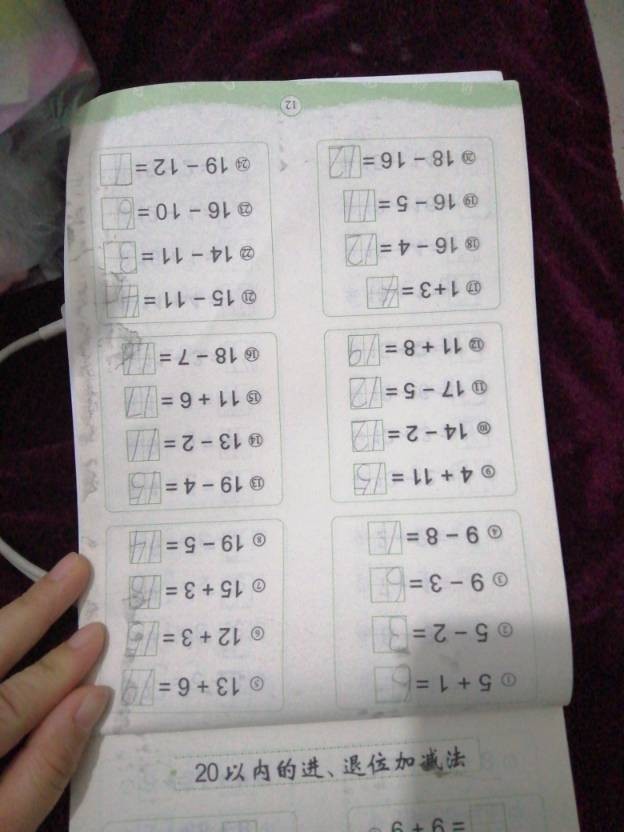 20以内的进、退位加减法
① 5 + 1 = 6
② 5 - 2 = 3
③ 9 - 3 = 6
④ 9 - 8 =
⑤ 13 + 6 = 19
⑥ 12 + 3 = 15
⑦ 15 + 3 = 18
⑧ 19 - 5 = 14
⑨ 4 + 11 = 15
⑩ 14 - 2 = 12
⑪ 17 - 5 = 12
⑫ 11 + 8 = 19
⑬ 19 - 4 = 15
⑭ 13 - 2 = 11
⑮ 11 + 6 = 17
⑯ 18 - 7 =
⑰ 1+3 = 4
⑱ 16 - 4 = 12
⑲ 16 - 5 = 11
⑳ 18 - 16 = 12
㉑ 15 - 11 = 4
㉒ 14 - 11 = 3
㉓ 16 - 10 = 6
㉔ 19 - 12 = 7
12